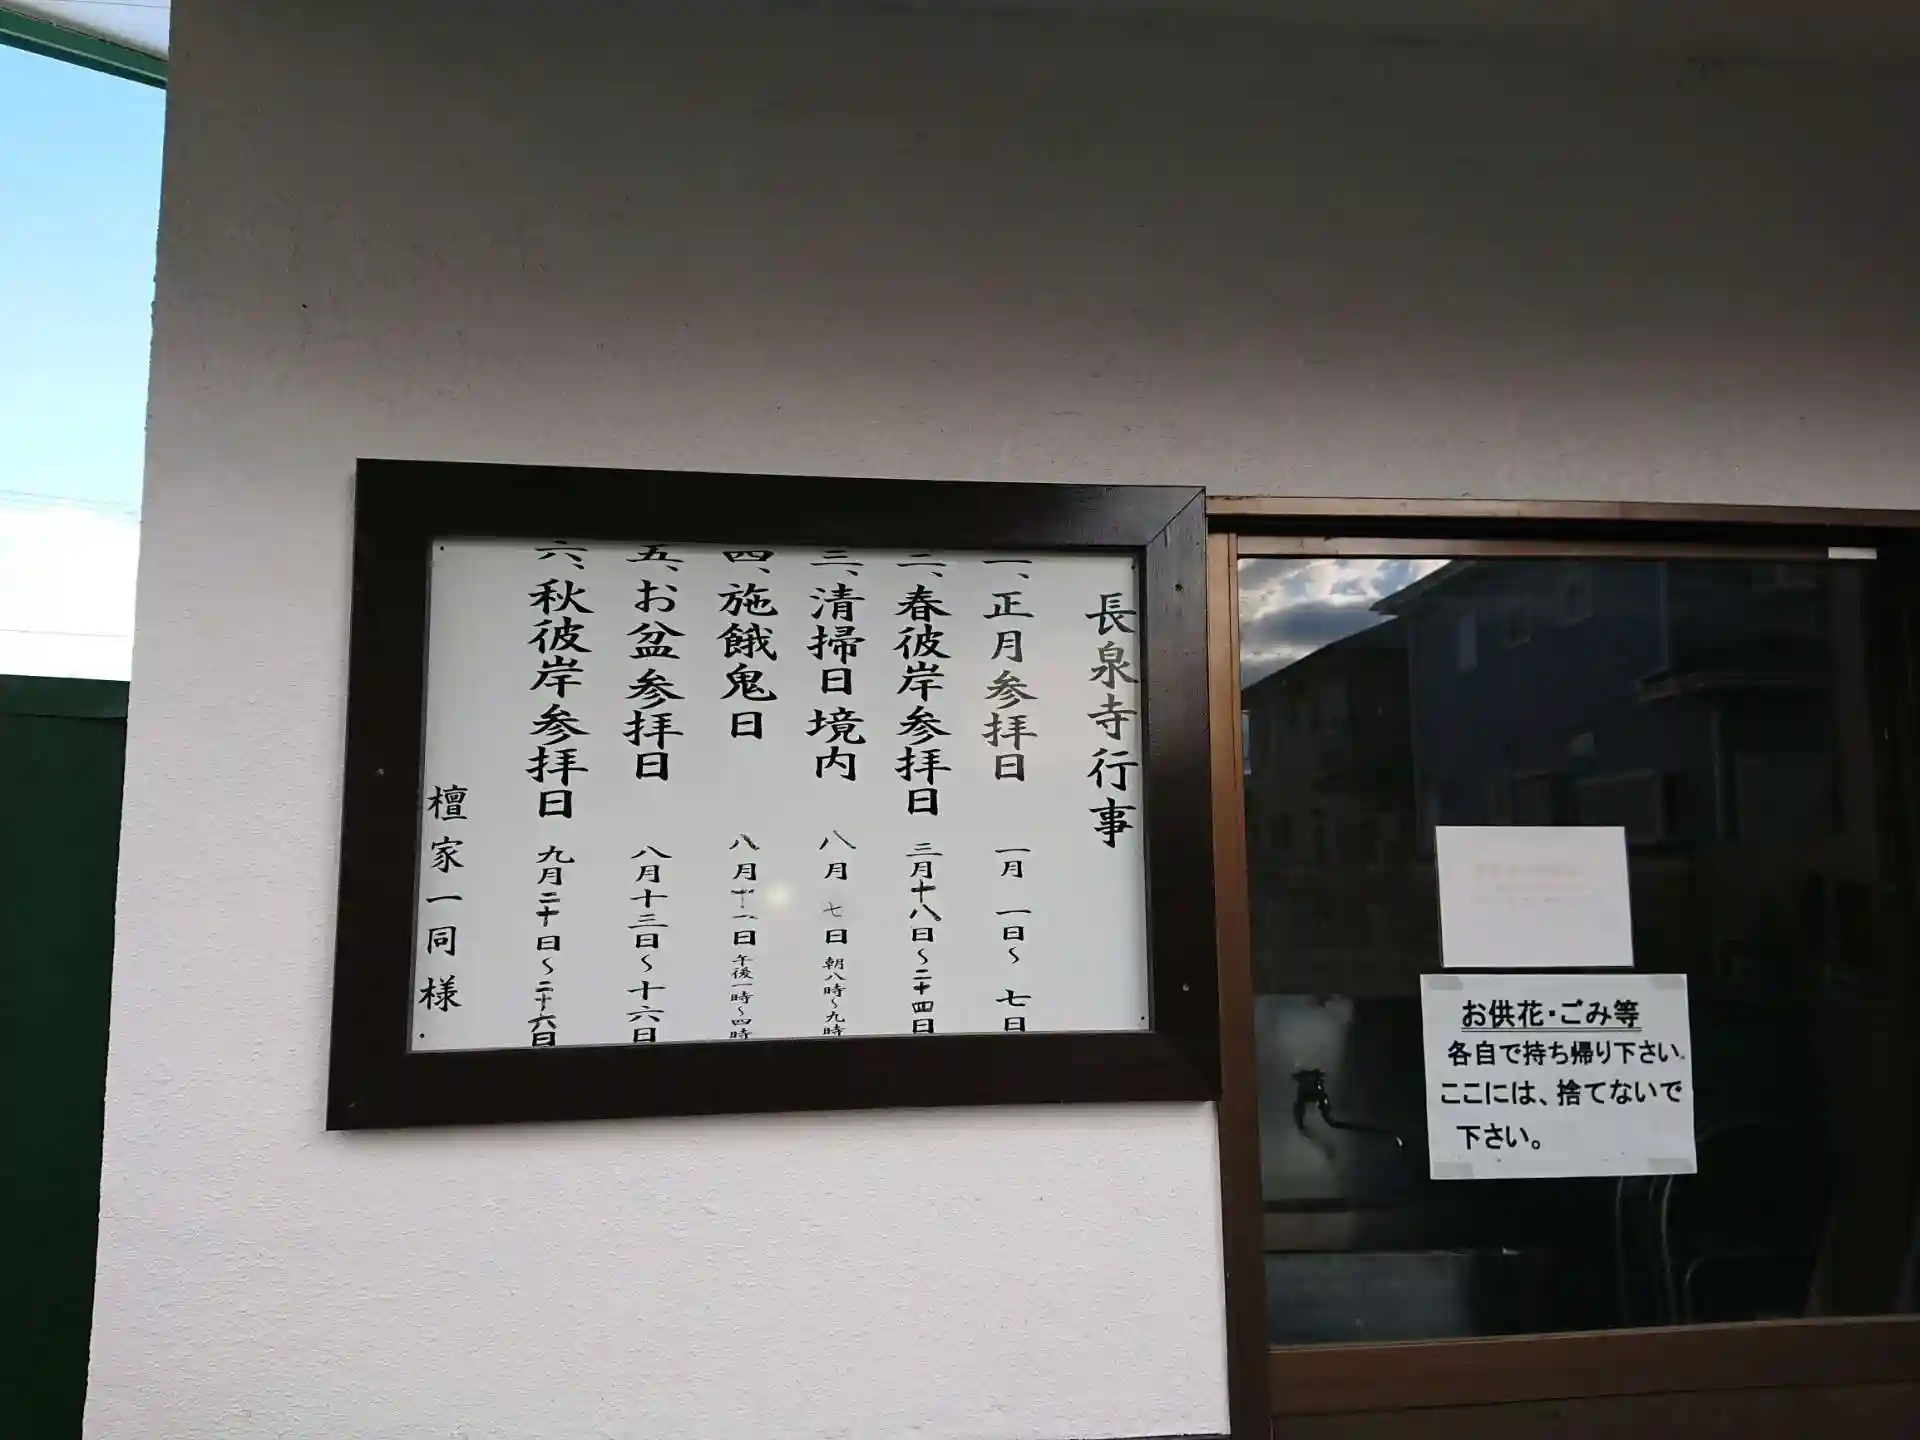 長泉寺行事
一、正月参拝日 一月 一日～ 七日
二、春彼岸参拝日 三月十八日～二十四日
三、清掃日境内 八月 七日 朝八時～九時
四、施餓鬼日 八月 日 午後一時～四時
五、お盆参拝日 八月十三日～十六日
六、秋彼岸参拝日 九月二十日～二十六日
檀家一同様
お供花・ごみ等
各自で持ち帰り下さい。
ここには、捨てないで
下さい。